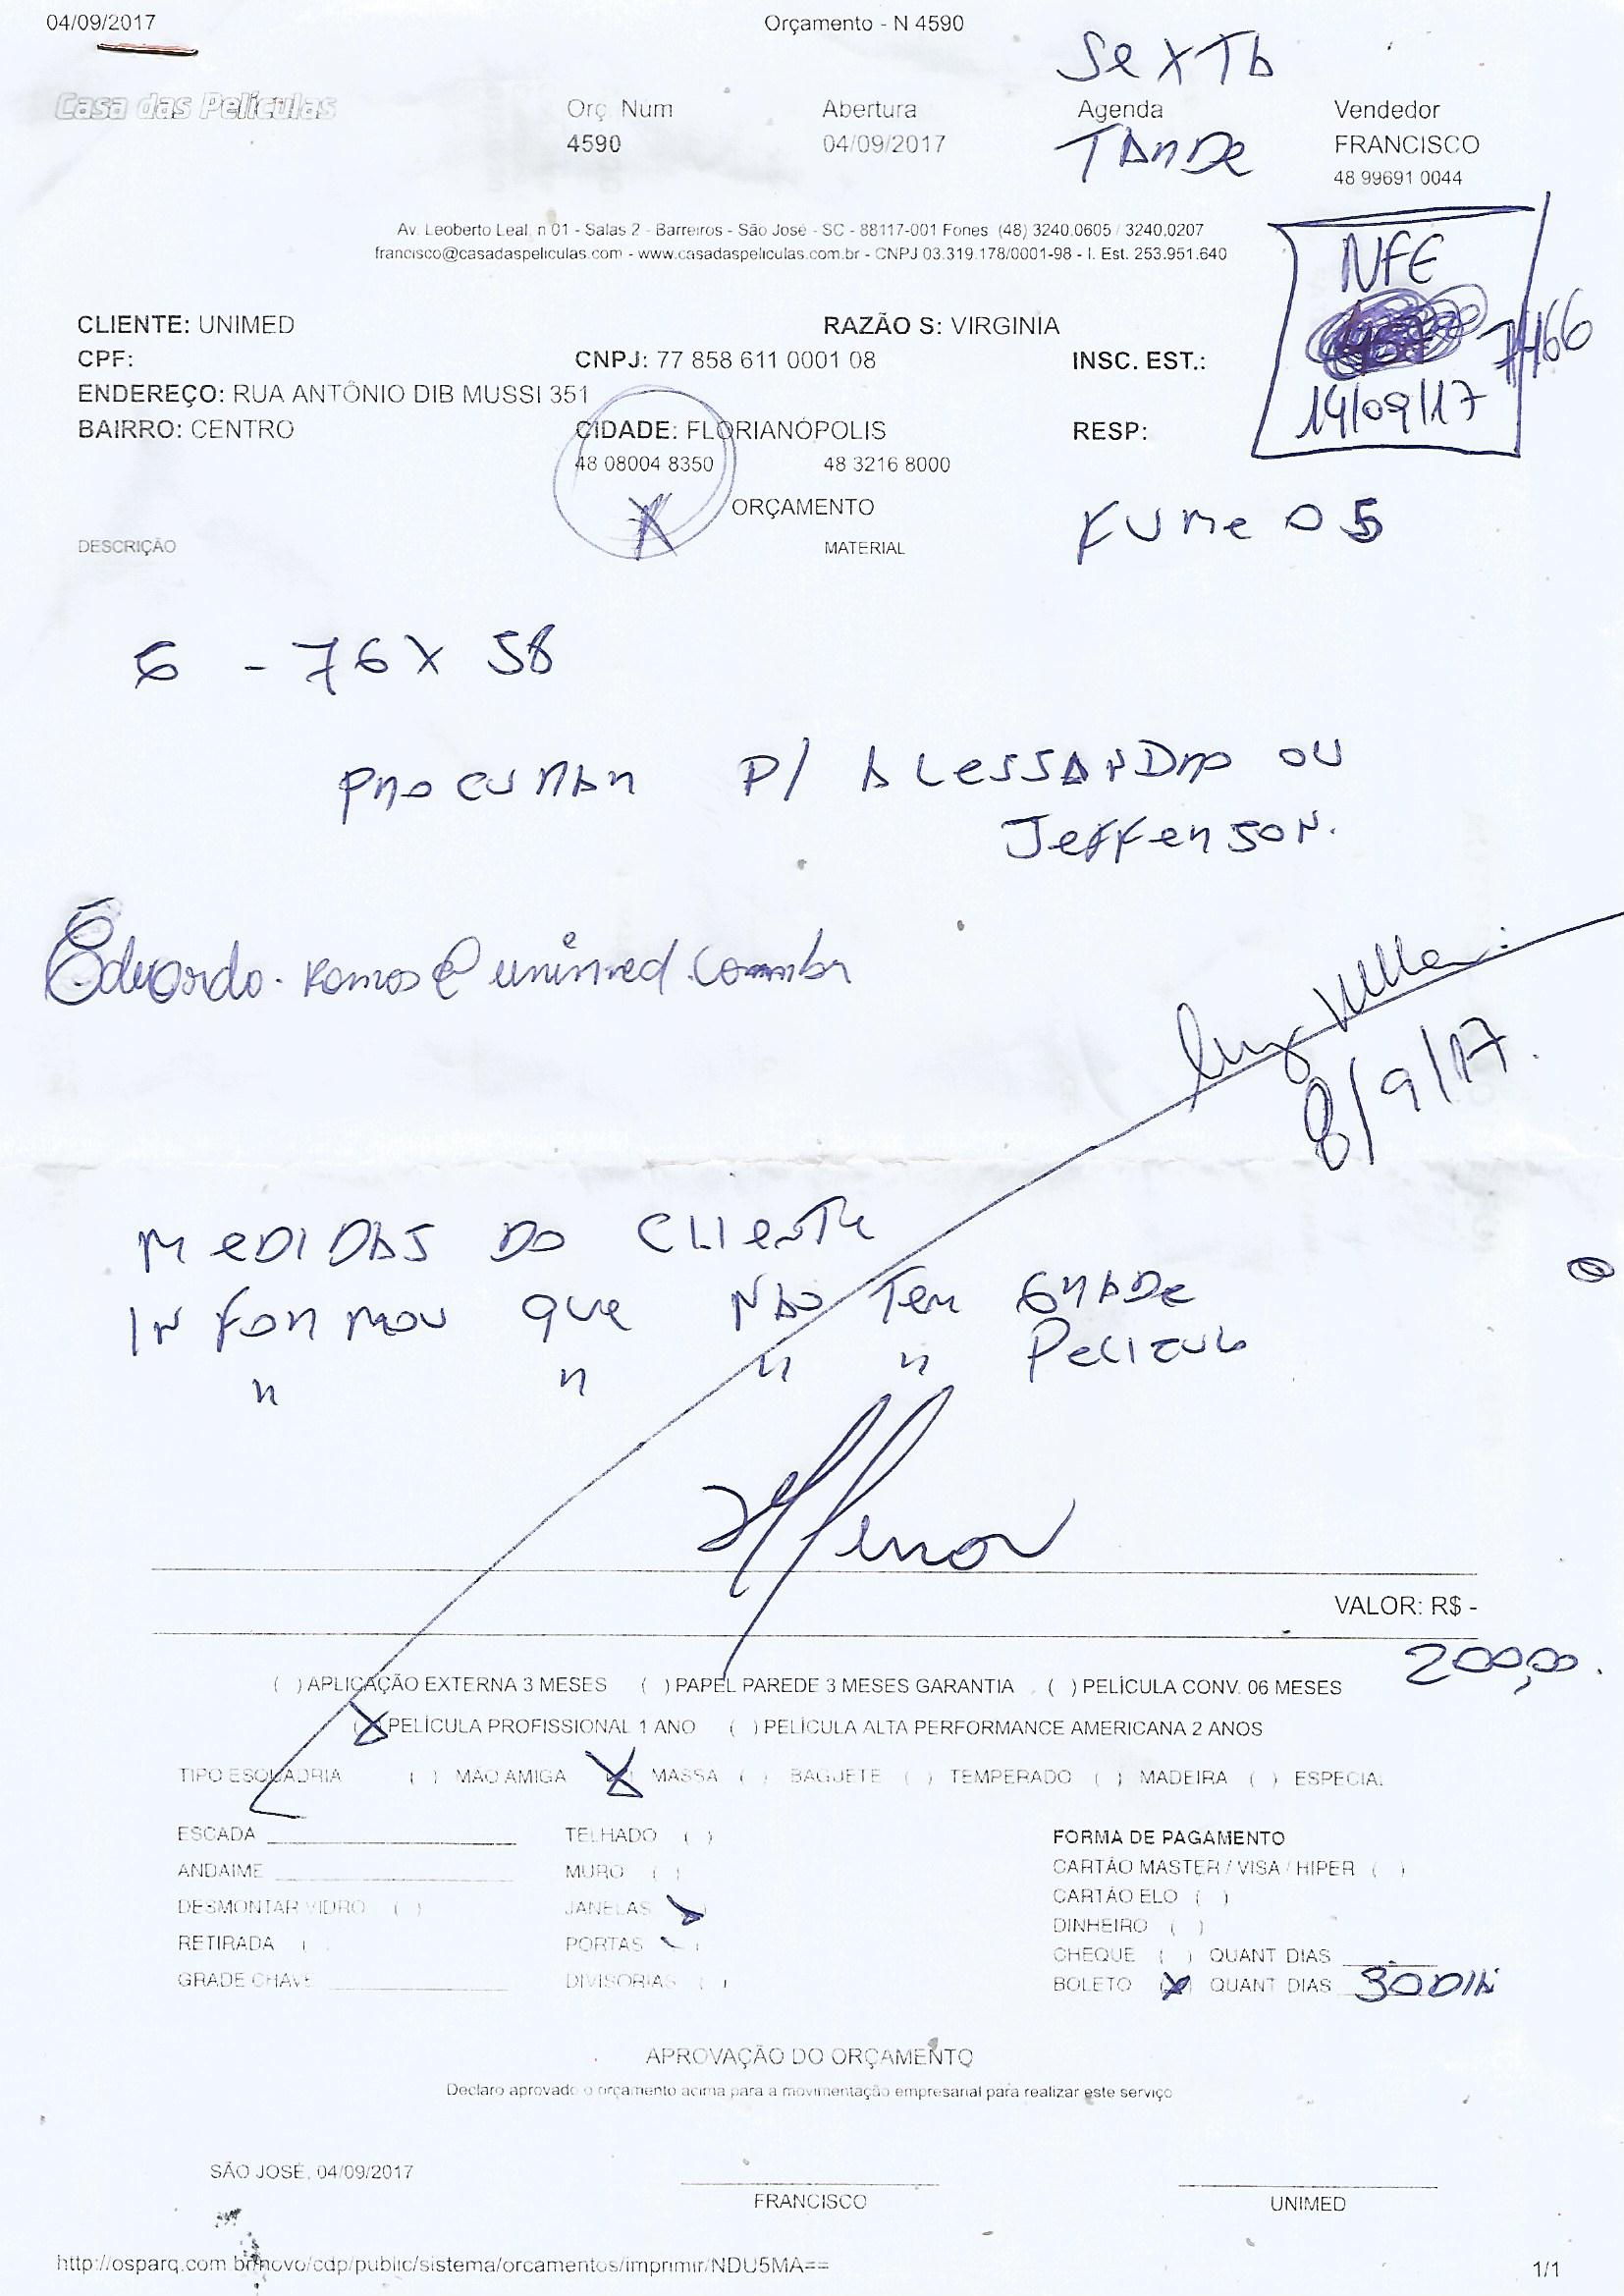 04/09/2017 Orçamento - N 4590
SEXTA
Casa das Películas Orç Num Abertura Agenda Vendedor
4590 04/09/2017 TARDE FRANCISCO
48 99691 0044
Av. Leoberto Leal, n 01 - Salas 2 - Barreiros - São José - SC - 88117-001 Fones (48) 3240.0605 / 3240.0207
francisco@casadaspeliculas.com - www.casadaspeliculas.com.br - CNPJ 03.319.178/0001-98 - I. Est. 253.951.640
NFE
7466
14/09/17
CLIENTE: UNIMED RAZÃO S: VIRGINIA
CPF: CNPJ: 77 858 611 0001 08 INSC. EST.:
ENDEREÇO: RUA ANTÔNIO DIB MUSSI 351
BAIRRO: CENTRO CIDADE: FLORIANÓPOLIS RESP:
48 08004 8350 48 3216 8000
ORÇAMENTO
DESCRIÇÃO MATERIAL FUME 05
6 - 76 X 58
PROCURAR P/ ALESSANDRO OU
JEFFERSON.
Eduardo.ramos@unimed.
8/9/17.
MEDIDAS DO CLIENTE
INFORMOU QUE NÃO TEM GRADE
" " " " PELICULA
VALOR: R$ -
200,00.
( ) APLICAÇÃO EXTERNA 3 MESES ( ) PAPEL PAREDE 3 MESES GARANTIA ( ) PELÍCULA CONV. 06 MESES
(X) PELÍCULA PROFISSIONAL 1 ANO ( ) PELÍCULA ALTA PERFORMANCE AMERICANA 2 ANOS
TIPO ESQUADRIA ( ) MAO AMIGA (X) MASSA ( ) BAGUETE ( ) TEMPERADO ( ) MADEIRA ( ) ESPECIAL
ESCADA TELHADO ( ) FORMA DE PAGAMENTO
ANDAIME MURO ( ) CARTÃO MASTER / VISA / HIPER ( )
DESMONTAR VIDRO ( ) JANELAS CARTÃO ELO ( )
RETIRADA ( PORTAS DINHEIRO ( )
GRADE CHAVE DIVISORIAS ( ) CHEQUE ( ) QUANT DIAS
BOLETO (X) QUANT DIAS 30 DIA
APROVAÇÃO DO ORÇAMENTO
Declaro aprovado o orçamento acima para a movimentação empresarial para realizar este serviço
SÃO JOSÉ, 04/09/2017
FRANCISCO UNIMED
http://osparq.com.br/novo/cdp/public/sistema/orcamentos/imprimir/NDU5MA== 1/1